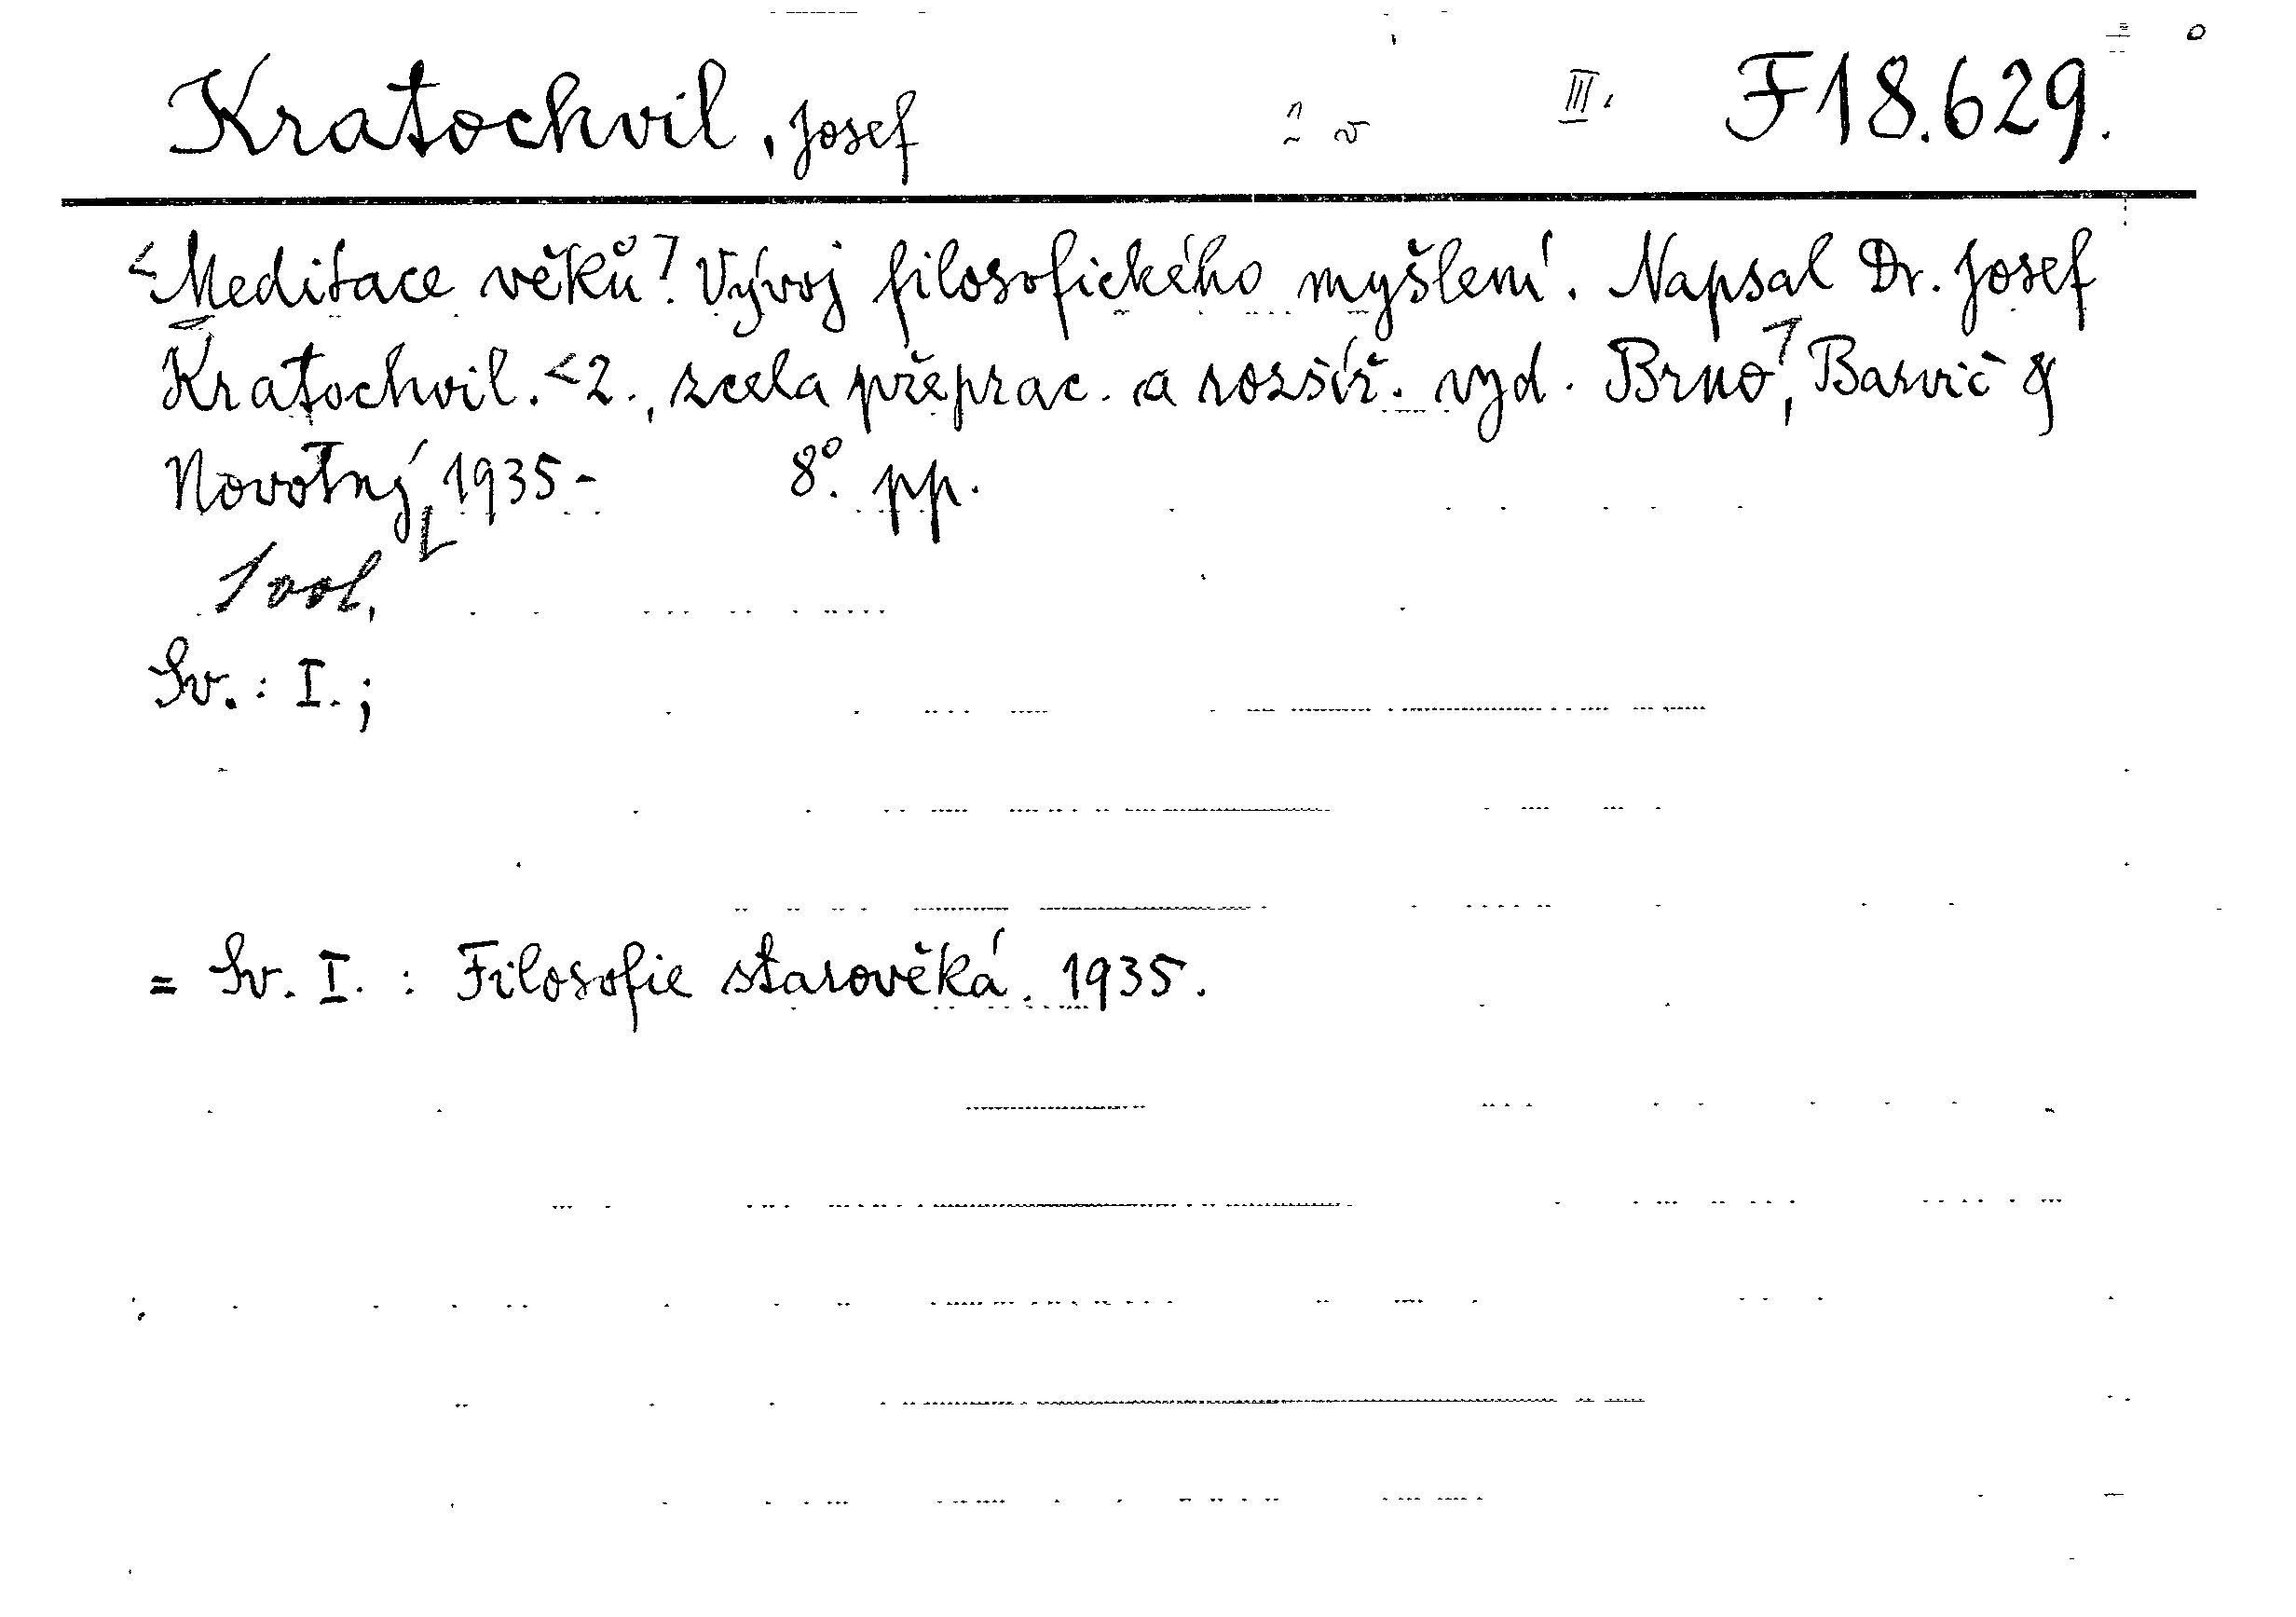 Kratochvil, Josef III. F 18.629.
<Meditace věků? Vývoj filosofického myšlení. Napsal Dr. Josef
Kratochvil. <2., zcela přeprac. a rozšíř. vyd. Brno, Barvič &
Novotný 1935- 8°. pp.
1 vol.
Sv.: I.;
= Sv. I. : Filosofie starověká. 1935.